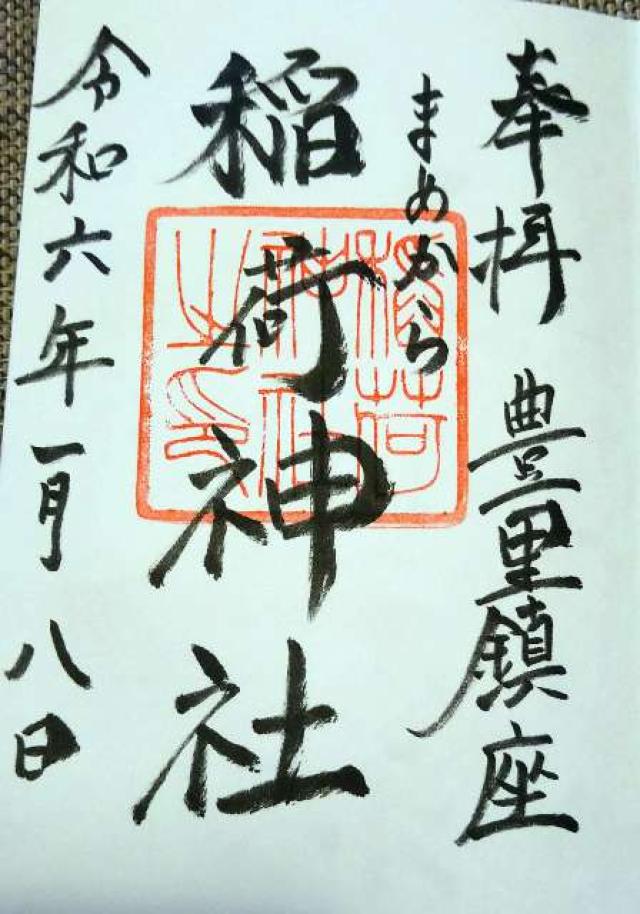 奉拝 豊里鎮座
まめからら
稲荷神社
稲荷
神社
之印
令和六年一月八日